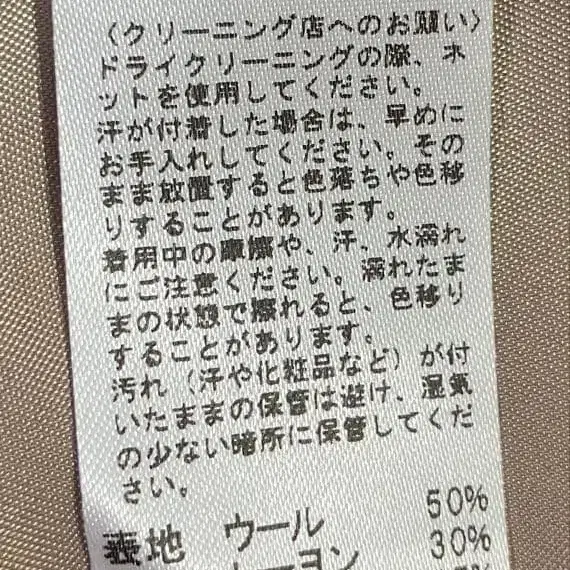 〈クリーニング店へのお願い〉
ドライクリーニングの際、ネ
ットを使用してください。
汗が付着した場合は、早めに
お手入れしてください。その
まま放置すると色落ちや色移
りすることがあります。
着用中の摩擦や、汗、水濡れ
にご注意ください。濡れたま
まの状態で擦れると、色移り
することがあります。
汚れ（汗や化粧品など）が付
いたままの保管は避け、湿気
の少ない暗所に保管してくだ
さい。
表地 ウール 50%
レーヨン 30%